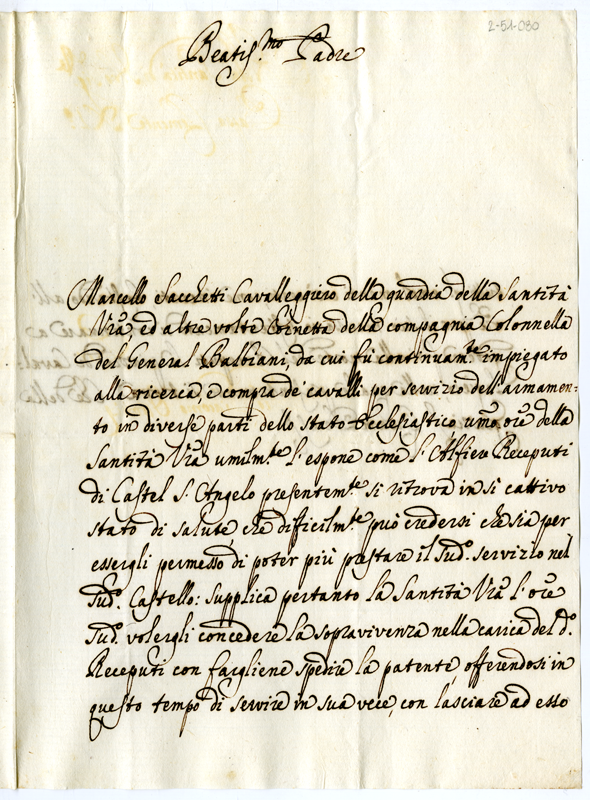 2-51-080
Beatis.mo Padre
Marcello Sacchetti Cavalleggiero della guardia della Santità
Vra, ed altre volte Cornetta della compagnia Colonnella
del General Balbiani, da cui fù continuam.te impiegato
alla ricerca, e compra de' cavalli per servizio dell'armamen=
to in diverse parti dello stato Ecclesiastico umo. ore della
Santità Vra umilm.te l'espone come l'Alfiere Receputi
di Castel S. Angelo presentem.te si ritrova in sì cattivo
stato di salute che difficilm.te può credersi che sia per
essergli permesso di poter più prestare il sud.o servizio nel
sud.o Castello: supplica pertanto la Santità Vra l'ore
sud.o volergli concedere la sopravivenza nella carica del d.o
Receputi con fargliene spedire la patente, offerendosi in
questo tempo di servire in sua vece, con lasciare ad esso